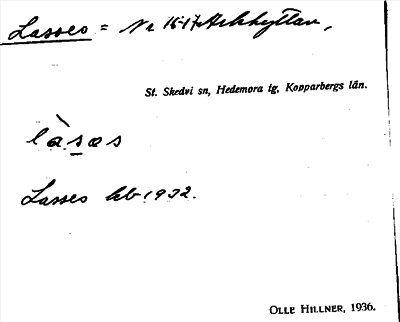 Lasses = Nr 16-17 Arkhyttan,
St. Skedvi sn, Hedemora tg, Kopparbergs län.
làsøs
Lasses kb 1932.
OLLE HILLNER, 1936.